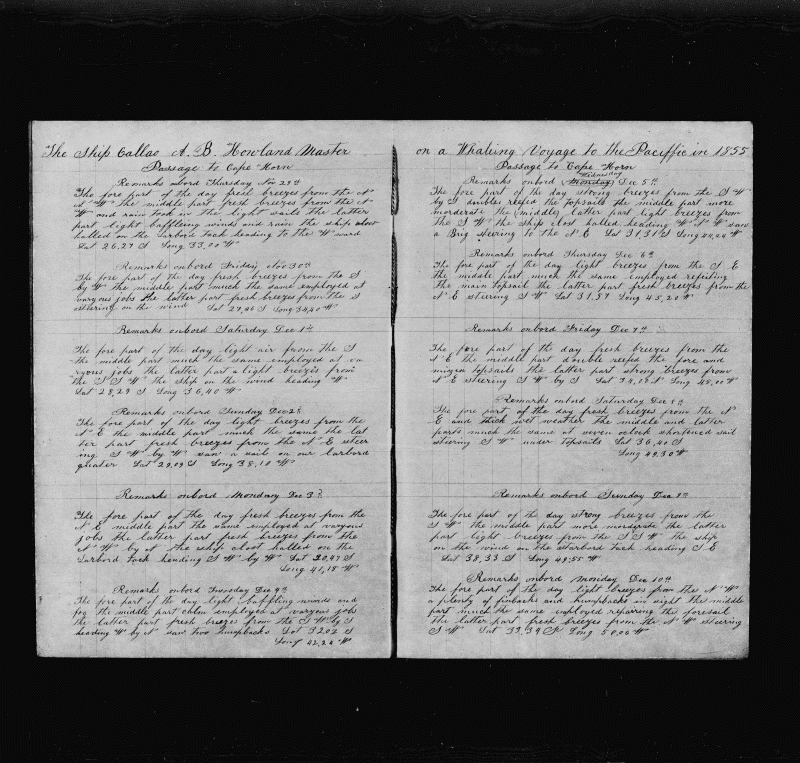 The Ship Callao A. B. Howland Master
Passage to Cape Horn
Remarks onbord Thursday Nov 29th
The fore part of the day fresh breezes from the N
N W the middle part fresh breezes from the N
W and rain took in the light sails the latter
part light baffling winds and rain the ship
halled on the larbord tack heading to the W ward
Lat 26,27 S Long 33,00 W
Remarks onbord Friday Nov 30th
The fore part of the day fresh breezes from the S
by W the middle part much the same employed at
varyous jobs the latter part fresh breezes from the S
steering on the wind Lat 27,46 S Long 34,40 W
Remarks onbord Saturday Dec 1st
The fore part of the day light air from the S
the middle part much the same employed at va
ryous jobs the latter part a light breezes from
the S S W the ship on the wind heading W
Lat 28,29 S Long 36,40 W
Remarks onbord Sunday Dec 2d
The fore part of the day light breezes from the
N E the middle part much the same the lat
ter part fresh breezes from the N E steer
ing S W by W saw a sail on our larbord
quater Lat 29,09 S Long 38,10 W
Remarks onbord Monday Dec 3d
The fore part of the day fresh breezes from the
N E middle part the same employed at varyous
jobs the latter part fresh breezes from the
N W by N the ship cloot halled on the
larbord tack heading S W by W Lat 30,47 S
Long 41,18 W
Remarks onbord Tuesday Dec 4th
The fore part of the day light baffling winds and
fog the middle part calm employed at varyous jobs
the latter part fresh breezes from the S W by S
heading W by N saw two humpbacks Lat 32,02 S
Long 42,24 W
on a Whaling Voyage to the Paciffic in 1855
Passage to Cape Horn
Remarks onbord Monday Wednesday Dec 5th
The fore part of the day strong breezes from the S W
by S doubles reefed the topsails the middle part more
morderate the (middle) latter part light breezes from
the S W the ship clost halled heading W N W saw
a Brig steering to the N E Lat 31,31 S Long 44,24 W
Remarks onbord Thursday Dec 6th
The fore part of the day light breezes from the S E
the middle part much the same employed refiting
the main topsail the latter part fresh breezes from the
N E steering S W Lat 31,57 Long 45,20 W
Remarks onbord Friday Dec 7th
The fore part of the day fresh breezes from the
N E the middle part double reefed the fore and
mizen topsails the latter part strong breezes from
N E steering S W by S Lat 34,18 S Long 48,00 W
Remarks onbord Saturday Dec 8th
The fore part of the day fresh breezes from the N
E and thick wet weather the middle and latter
parts much the same at seven oclock shortened sail
steering S W under topsails Lat 36,40 S
Long 49,30 W
Remarks onbord Sunday Dec 9th
The fore part of the day strong breezes from the
S W the middle part more morderate the latter
part light breezes from the S S W the ship
on the wind on the starbord tack heading S E
Lat 38,33 S Long 49,55 W
Remarks onbord Monday Dec 10th
The fore part of the day light breezes from the N W
a plenty of finbarks and humpbacks in sight the middle
part much the same employed repairing the foresail
the latter part fresh breezes from the N W steering
S W Lat 39,39 S Long 50,00 W